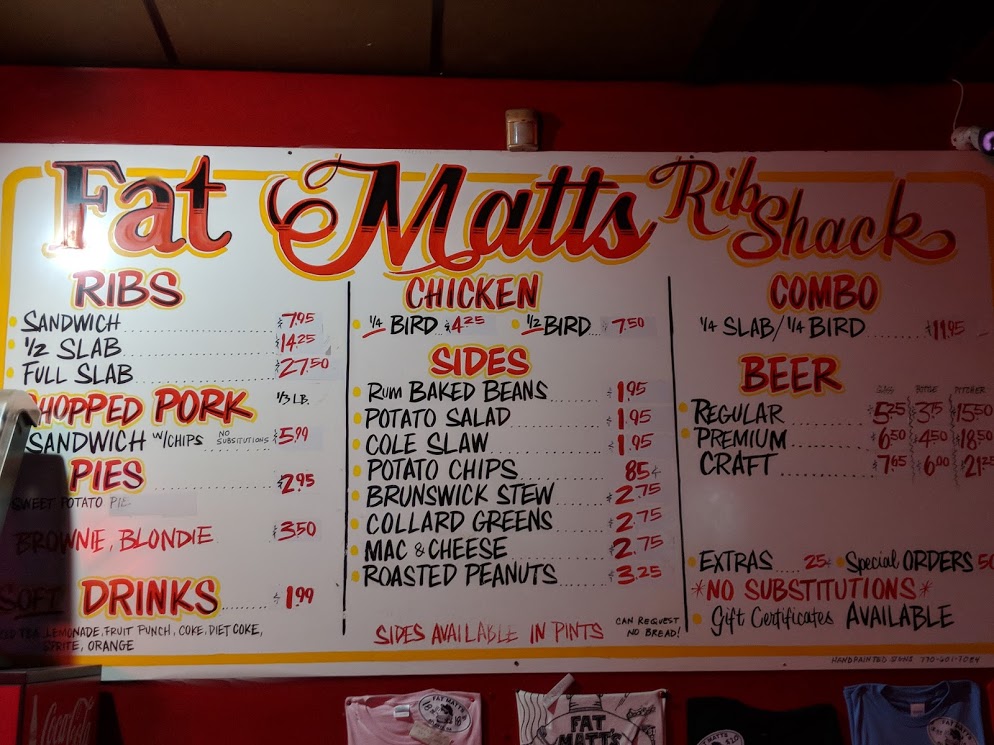 Fat Matts Rib Shack
RIBS
SANDWICH $7.95
1/2 SLAB $14.25
FULL SLAB $27.50
CHOPPED PORK 1/3 LB.
SANDWICH W/CHIPS NO SUBSITUTIONS $5.99
PIES $2.95
SWEET POTATO PIE
BROWNIE, BLONDIE $3.50
SOFT DRINKS $1.99
LEMONADE, FRUIT PUNCH, COKE, DIET COKE,
SPRITE, ORANGE
CHICKEN
1/4 BIRD $4.25 1/2 BIRD $7.50
SIDES
RUM BAKED BEANS $1.95
POTATO SALAD $1.95
COLE SLAW $1.95
POTATO CHIPS 85¢
BRUNSWICK STEW $2.75
COLLARD GREENS $2.75
MAC & CHEESE $2.75
ROASTED PEANUTS $3.25
SIDES AVAILABLE IN PINTS
CAN REQUEST
NO BREAD!
COMBO
1/4 SLAB/1/4 BIRD $11.95
BEER
BOTTLE PITCHER
REGULAR $5.25 $3.75 $15.50
PREMIUM $6.50 $4.50 $18.50
CRAFT $7.65 $6.00 $21.25
EXTRAS 25¢ Special ORDERS 50
*NO SUBSTITUTIONS*
Gift Certificates AVAILABLE
HANDPAINTED SIGNS 770-601-7084
Coca-Cola
FAT MATT'S
FAT
MATT'S
FAT MATT'S